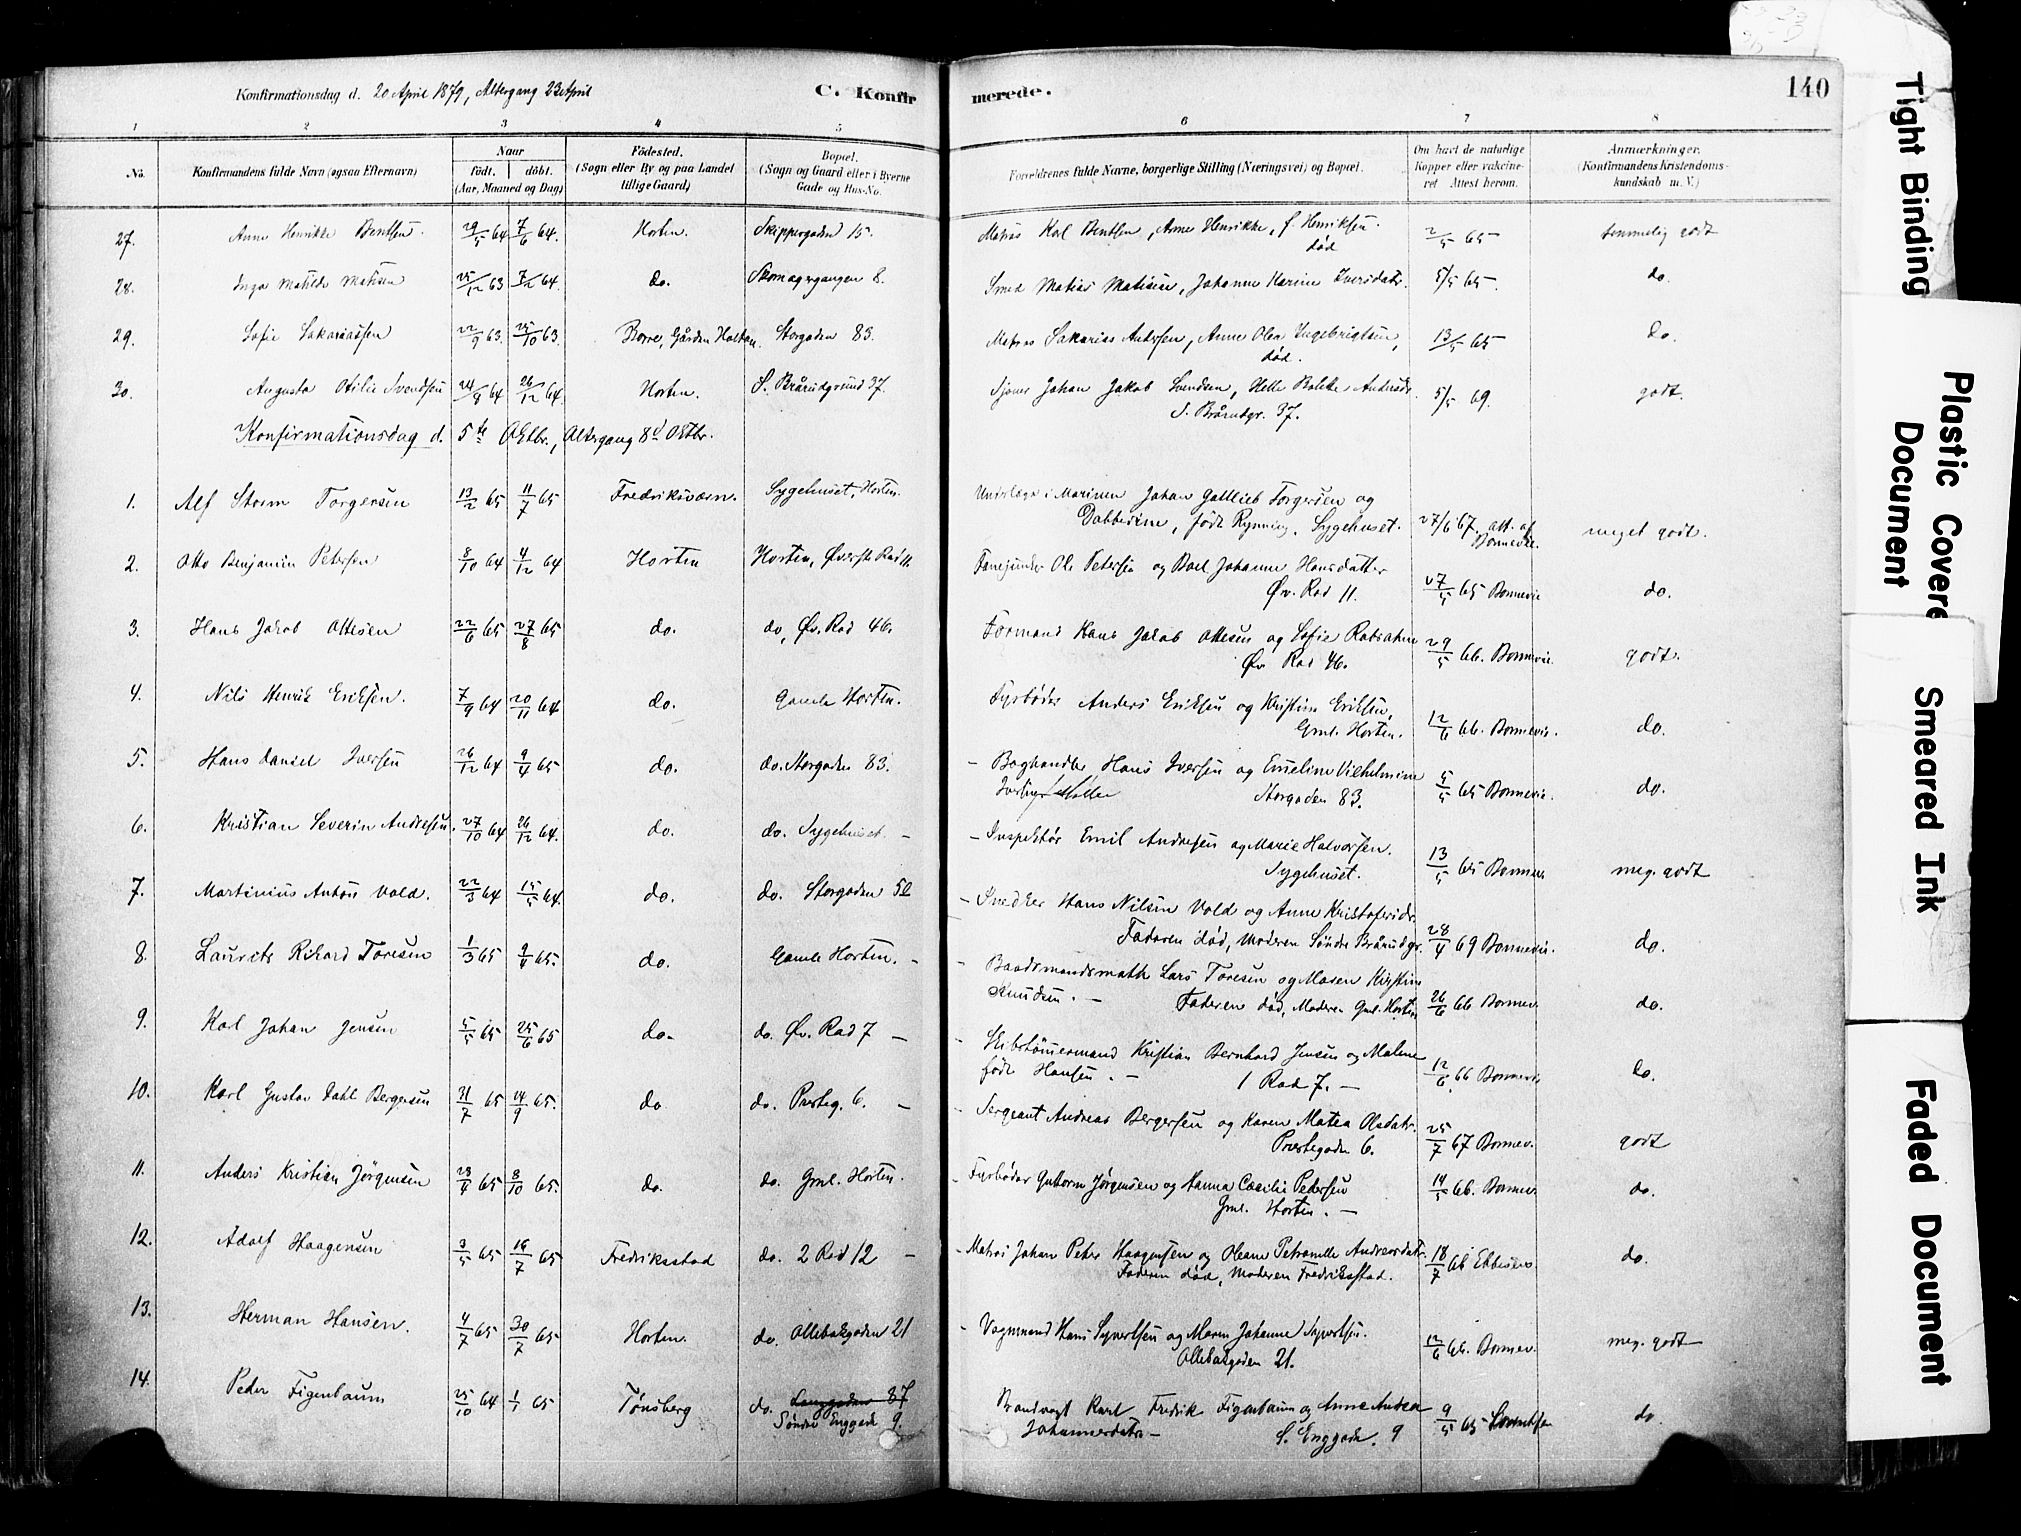 Konfirmationsdag d. 20 April 1879, Altergang 23 April C. Konfir
merede. 140
1 2 3 4 5 6 7 8
No. Konfirmandens fulde Navn (ogsaa Efternavn) Naar födt. döbt. (Aar, Maaned og Dag) Födested. (Sogn eller By og paa Landet tillige Gaard) Bopæl. (Sogn og Gaard eller i Byerne Gade og Hus-No.
Forældrenes fulde Navne, borgerlige Stilling (Næringsvei) og Bopæl. Om havt de naturlige Kopper eller vakcineret Attest herom. Anmærkninger. (Konfirmandens Kristendomskundskab m. V.)
27. Anne Henrikke Bentsen. 29/5 64 7/6 64. Horten. Skippergaden 15. Matros Karl Bentsen, Anne Henrikke, f. Henriksen. 2/5 65 temmelig godt
død
28. Inga Matilde Matisen 25/12 63 7/2 64. do. Skomagergangen 8. Smed Matias Matisen, Johanne Karine Iversdatr. 5/5 65. do.
29. Sofie Sakariassen 22/9 63. 25/10 63. Borre, Gården Holtan. Storgaden 83. Matros Sakarias Andersen, Anne Olea Ingebrigtsen, 13/5 65 do.
død.
30. Augusta Otilie Svendsen 24/8 64 26/12 64. Horten. S. Brårudgrund 37. Sjøner Johan Jakob Svendsen, Helle Bolette Andersdr. 5/5 69. godt.
S. Brårudgr. 37.
Konfirmationsdag d. 5te Oktbr., Altergang 8d Oktbr.
1. Alf Storm Torgersen 13/2 65 11/7 65 Fredriksværn. Sygehuset, Horten. Underlæge i Marinen Johan Gottlieb Torgersen og
født Rynning. Sygehuset. 27/6 67, att. af Bonnevie. meget godt.
2. Otto Benjamin Petersen 8/10 64 4/12 64 Horten Horten, Øverste Rad 11. Fanejunker Ole Petersen og Boel Johanne Hansdatter
Øv. Rad 11. 27/5 65 Bonnevie do.
3. Hans Jakob Ottesen 22/6 65 27/8 65 do. do, Øv. Rad 46. Formand Hans Jakob Ottesen og Sofie
Øv. Rad 46. 29/5 66. Bonnevie. godt.
4. Nils Henrik Eriksen. 7/9 64 20/11 64 do. Gamle Horten. Fyrbøder Anders Eriksen og Kristine Eriksen,
Gml. Horten. 12/6 66. Bonnevie. do.
5. Hans Daniel Iversen 26/12 64 9/4 65 do. do. Storgaden 83. - Boghandler Hans Iversen og Emeline Vilhelmine
Møller Storgaden 83. 5/5 65 Bonnevie. do.
6. Kristian Severin Andresen. 27/10 64 26/12 64. do. do. Sygehuset - - Inspektør Emil Andresen og Marie Halvorsen.
Sygehuset. 13/5 65 Bonnev. meg. godt
7. Martinius Anton Vold. 22/3 64 15/5 64. do. do. Storgaden 50 - Snedker Hans Nilsen Vold og Anne Kristofersdr.
Faderen død, Moderen Søndre Brårudgr. 28/4 69 Bonnevie. do.
8. Laurits Rikard Toresen 1/3 65 9/4 65. do. Gamle Horten. - - Baadsmandsmath Lars Toresen og Maren Kirstine
Knudsen. - Faderen død, Moderen Gml. Horten 26/6 66 Bonnev. do.
9. Karl Johan Jensen 5/5 65 25/6 65 do. do. Øv. Rad 7 - - Skibstømmermand Kristian Bernhard Jensen og Malene
født Hansen. - 1 Rad 7. - 12/6 66 Bonnevie do.
10. Karl Gustav Dahl Bergersen 31/7 65 24/9 65. do do. Præsteg. 6. - - Sergeant Andreas Bergersen og Karen Matea Olsdatr.
Præstegaden 6. 25/7 67 Bonnev. godt
11. Anders Kristian Jörgensen 23/4 65 8/10 65. do. do. Gml. Horten. - Fyrbøder Guttorm Jørgensen og Hanna Cæcilie Petersen 14/5 66. Bonnev. do.
Gml. Horten. -
12. Adolf Haagensen 3/5 65 16/7 65 Fredriksstad do. 2 Rad 12 - - Matros Johan Peter Haagensen og Oleane Petronelle Andreasdatr. 18/7 66 Ebbesen do.
Faderen død, Moderen Fredriksstad.
13. Herman Hansen. 4/7 65 30/7 65 Horten. do. Ollebakgaden 21 - Vognmand Hans Syvertsen og Maren Johanne Syvertsen. 12/6 66. Bonnev. meg. godt
Ollebakgaden 21.
14. Peder Figenbaum 25/10 64 1/1 65 Tønsberg do. Langgaden 87 Brandvagt Karl Fredrik Figenbaum og Anne Andrea 9/5 65 do.
Søndre Enggade 9. Johannesdatr - S. Enggade. 9
Tight Binding
Plastic Covere
Document
Smeared Ink
Faded Document